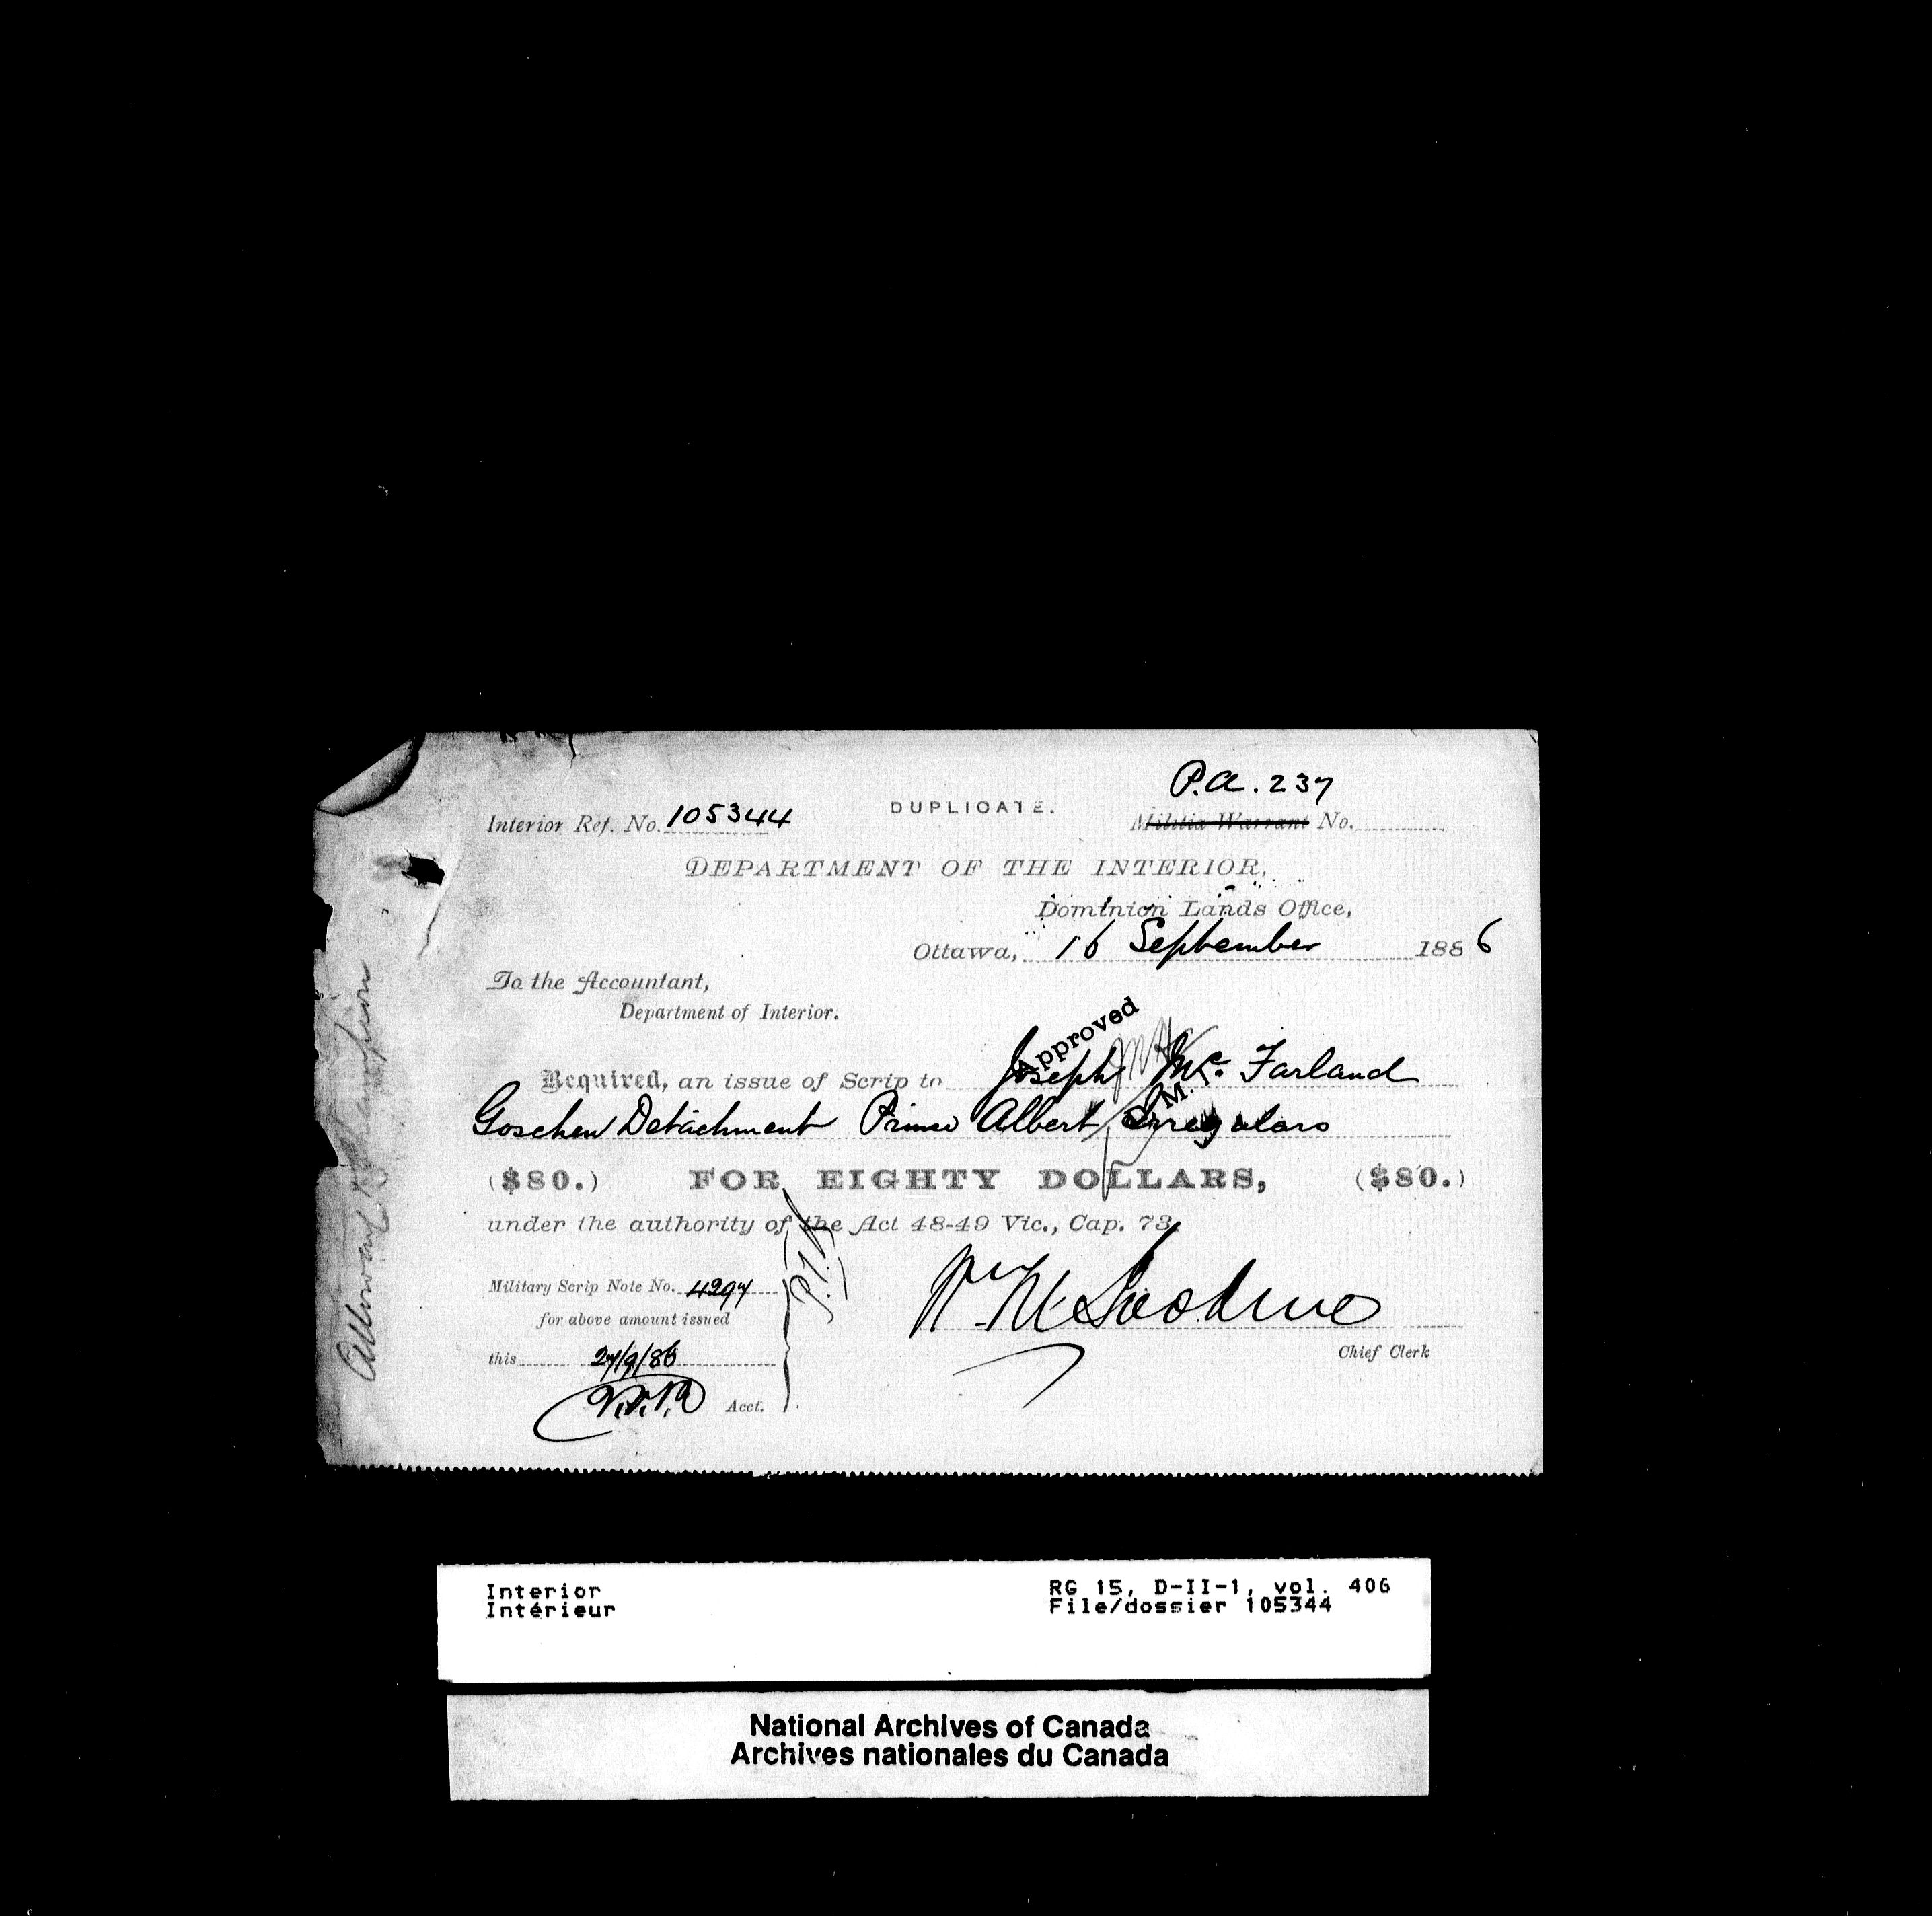 P.A. 237
Interior Ref. No. 105344
DUPLICATE.
Militia Warrant No.
DEPARTMENT OF THE INTERIOR,
Dominion Lands Office,
Ottawa, 16 September 1886
To the Accountant,
Department of Interior.
Approved
Required, an issue of Scrip to Joseph Mc. Farland
Goschen Detachment Prince Albert Irregulars
($80.) FOR EIGHTY DOLLARS, ($80.)
under the authority of the Act 48-49 Vic., Cap. 73.
Military Scrip Note No. 4297
for above amount issued
this 27/9/86
Chief Clerk
Acct.
Interior
Intérieur
RG 15, D-II-1, vol. 406
File/dossier 105344
National Archives of Canada
Archives nationales du Canada